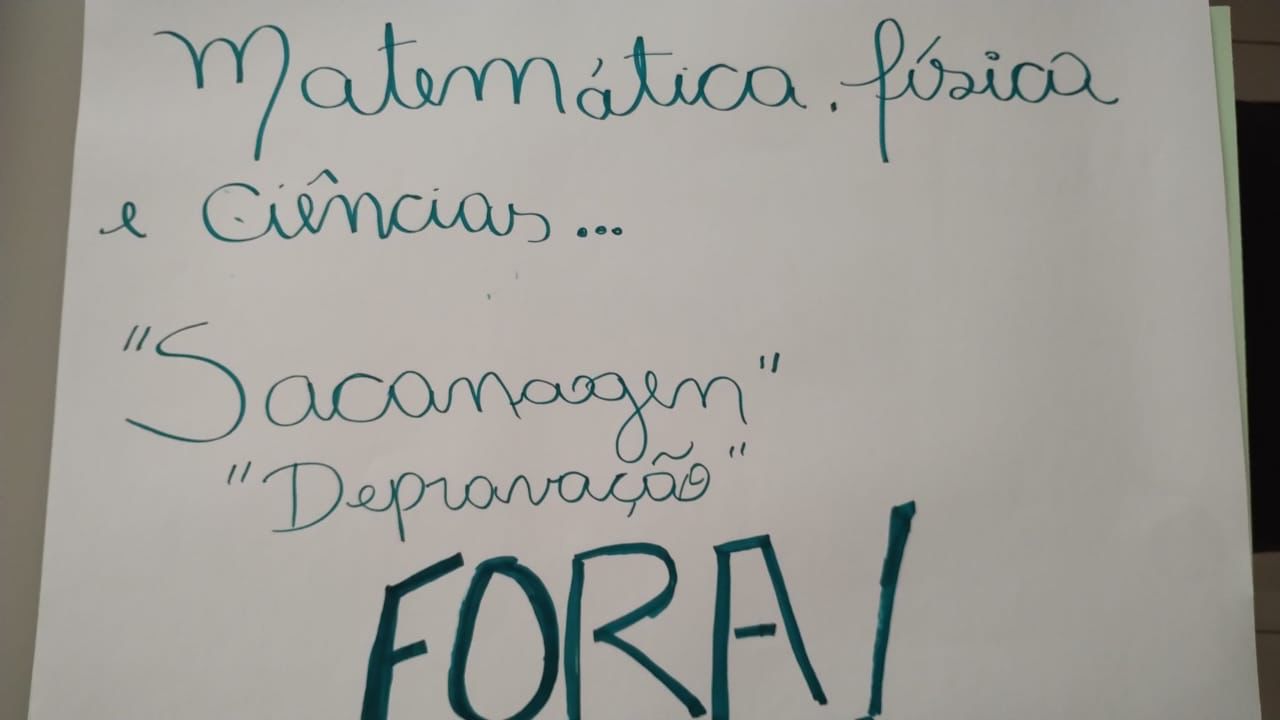 Matemática. física
e Ciências...
"Sacanagem"
"Depravação"
FORA!